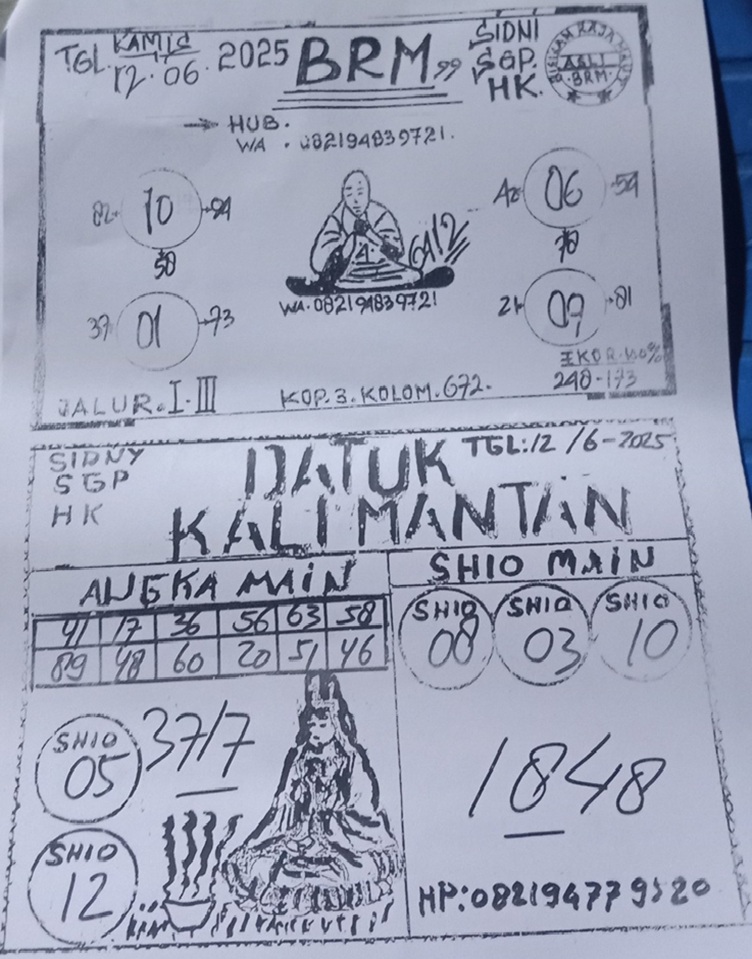 TGL. KAMIS
12.06. 2025
BRM 99
SIDNI
SGP.
HK.
ASLI
BRM
→ HUB.
WA . 082194839721.
82 10 94
50
42 06 54
6412
WA. 082194839721
39 01 73
21 81
EKOR. 100%
JALUR. I. III
KOP. 3. KOLOM. 672.
248-173
SIDNY
SGP
HK
DATUK
KALIMANTAN
TGL:12 /6-2025
ANGKA MAIN
41 17 36 56 63 58
89 48 60 20 51 46
SHIO MAIN
SHIO 08
SHIO 03
SHIO 10
SHIO 05
37/7
SHIO 12
1848
HP:082194779520